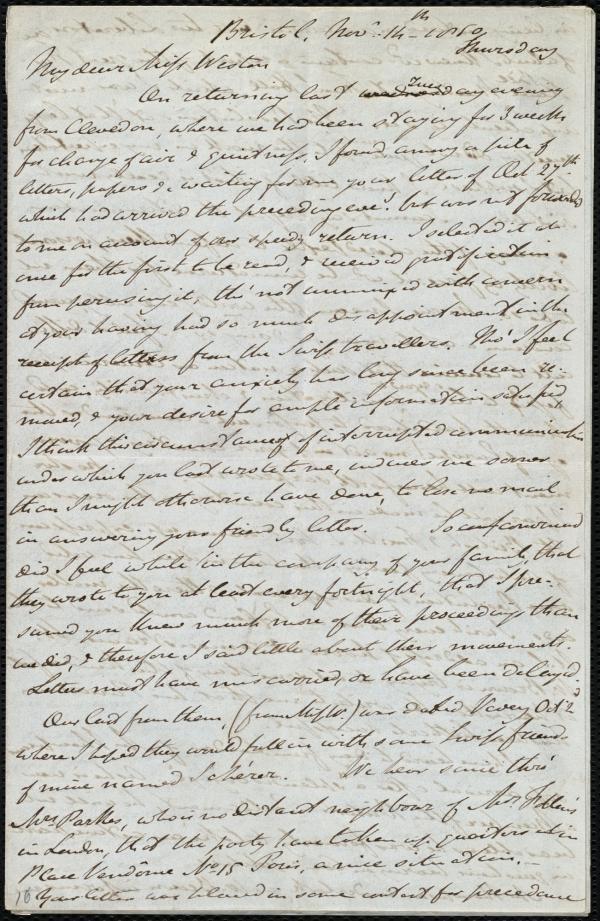 Bristol, Novr. 14th 1850
Thursday
My dear Miss Weston
On returning last Tuesday evening
from Clevedon, where we had been staying for 3 weeks
for change of air & quietness, I found among a pile of
letters, papers &c waiting for me your letter of Oct 27th
which had arrived the preceding eveg. but was not forwarded
to me on account of our speedy return. I selected it at
once for the first to be read, & received gratification
from perusing it, tho' not unmixed with concern
at your having had so much disappointment in the
receipt of letters from the Swiss travellers. Tho' I feel
certain that your anxiety has long since been re-
moved, & your desire for ample information satisfied,
I think this circumstance of interrupted communication
under which you last wrote to me, induces me sooner
than I might otherwise have done, to lose no mail
in answering your friendly letter. So convinced
did I feel while in the company of your family, that
they wrote to you at least every fortnight, that I pre-
sumed you knew much more of their proceedings than
we did, & therefore I said little about their movements.
Letters must have miscarried, or have been delayed.
Our last from them, (from Miss W.) was dated Vevey Oct 2
where I hoped they would fall in with some Swiss friends
of mine named Scherer. We hear since thro'
Mrs Parkes, who is no distant neighbour of Mrs Follen's
in London, that the party have taken up quarters at in
Place Vendôme No 15 Paris, a nice situation.
Your letter was placed in some contest for precedence